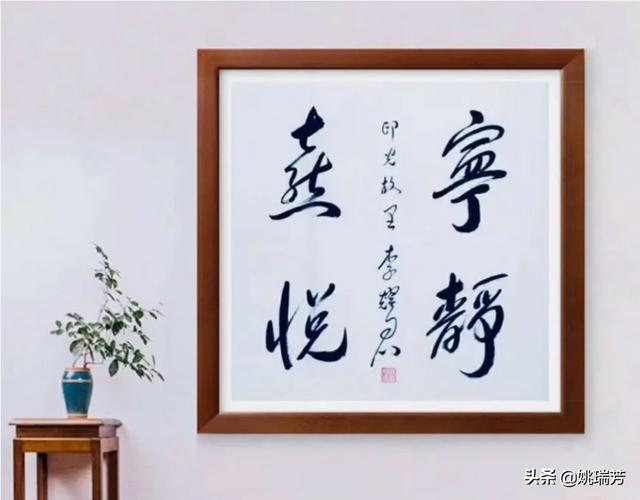 寧靜
印光故里 李耀
喜悦
头条 @姚瑞芳